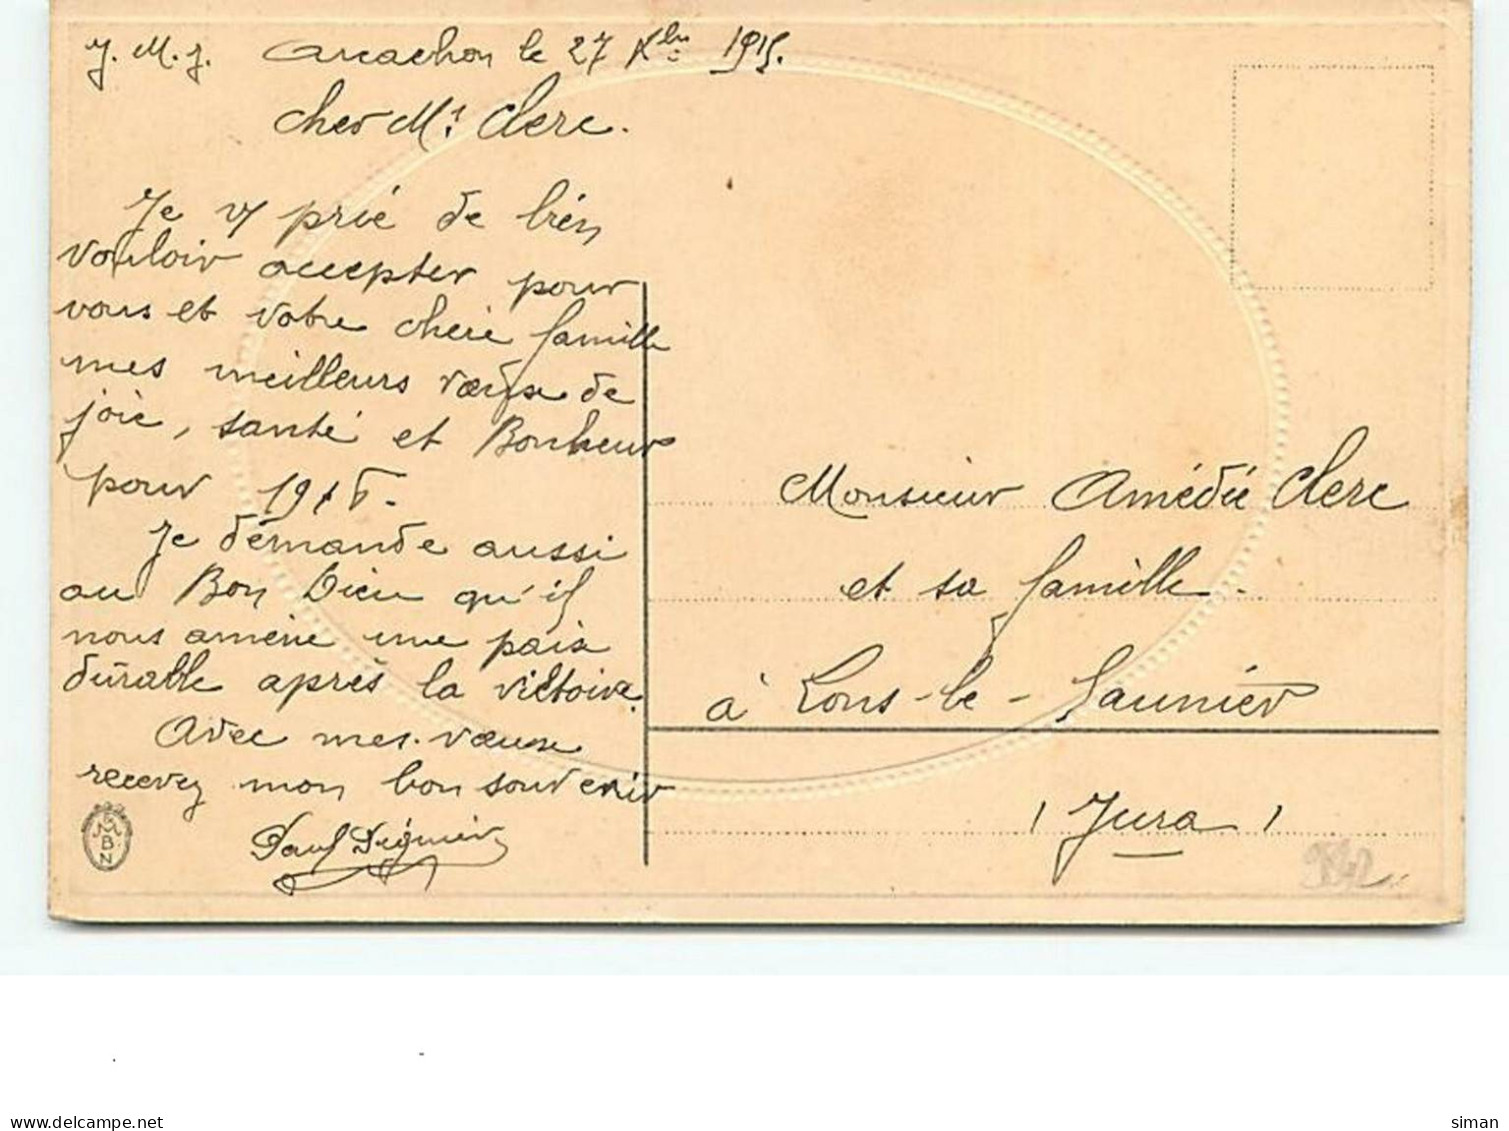 J. M. J. Arcachon le 27 Xbre 1915.
Cher Mr Clerc.
Je vs prié de bien
vouloir accepter pour
vous et votre chère famille
mes meilleurs vœux de
joie, santé et Bonheur
pour 1916.
Je démande aussi
au Bon Dieu qu'il
nous amène une paix
durable après la victoire.
Avec mes vœux
recevez mon bon souvenir
Paul
Monsieur Amédée Clerc
et sa famille.
à Lons-le-Saunier
(Jura)
MBN
www.delcampe.net
siman